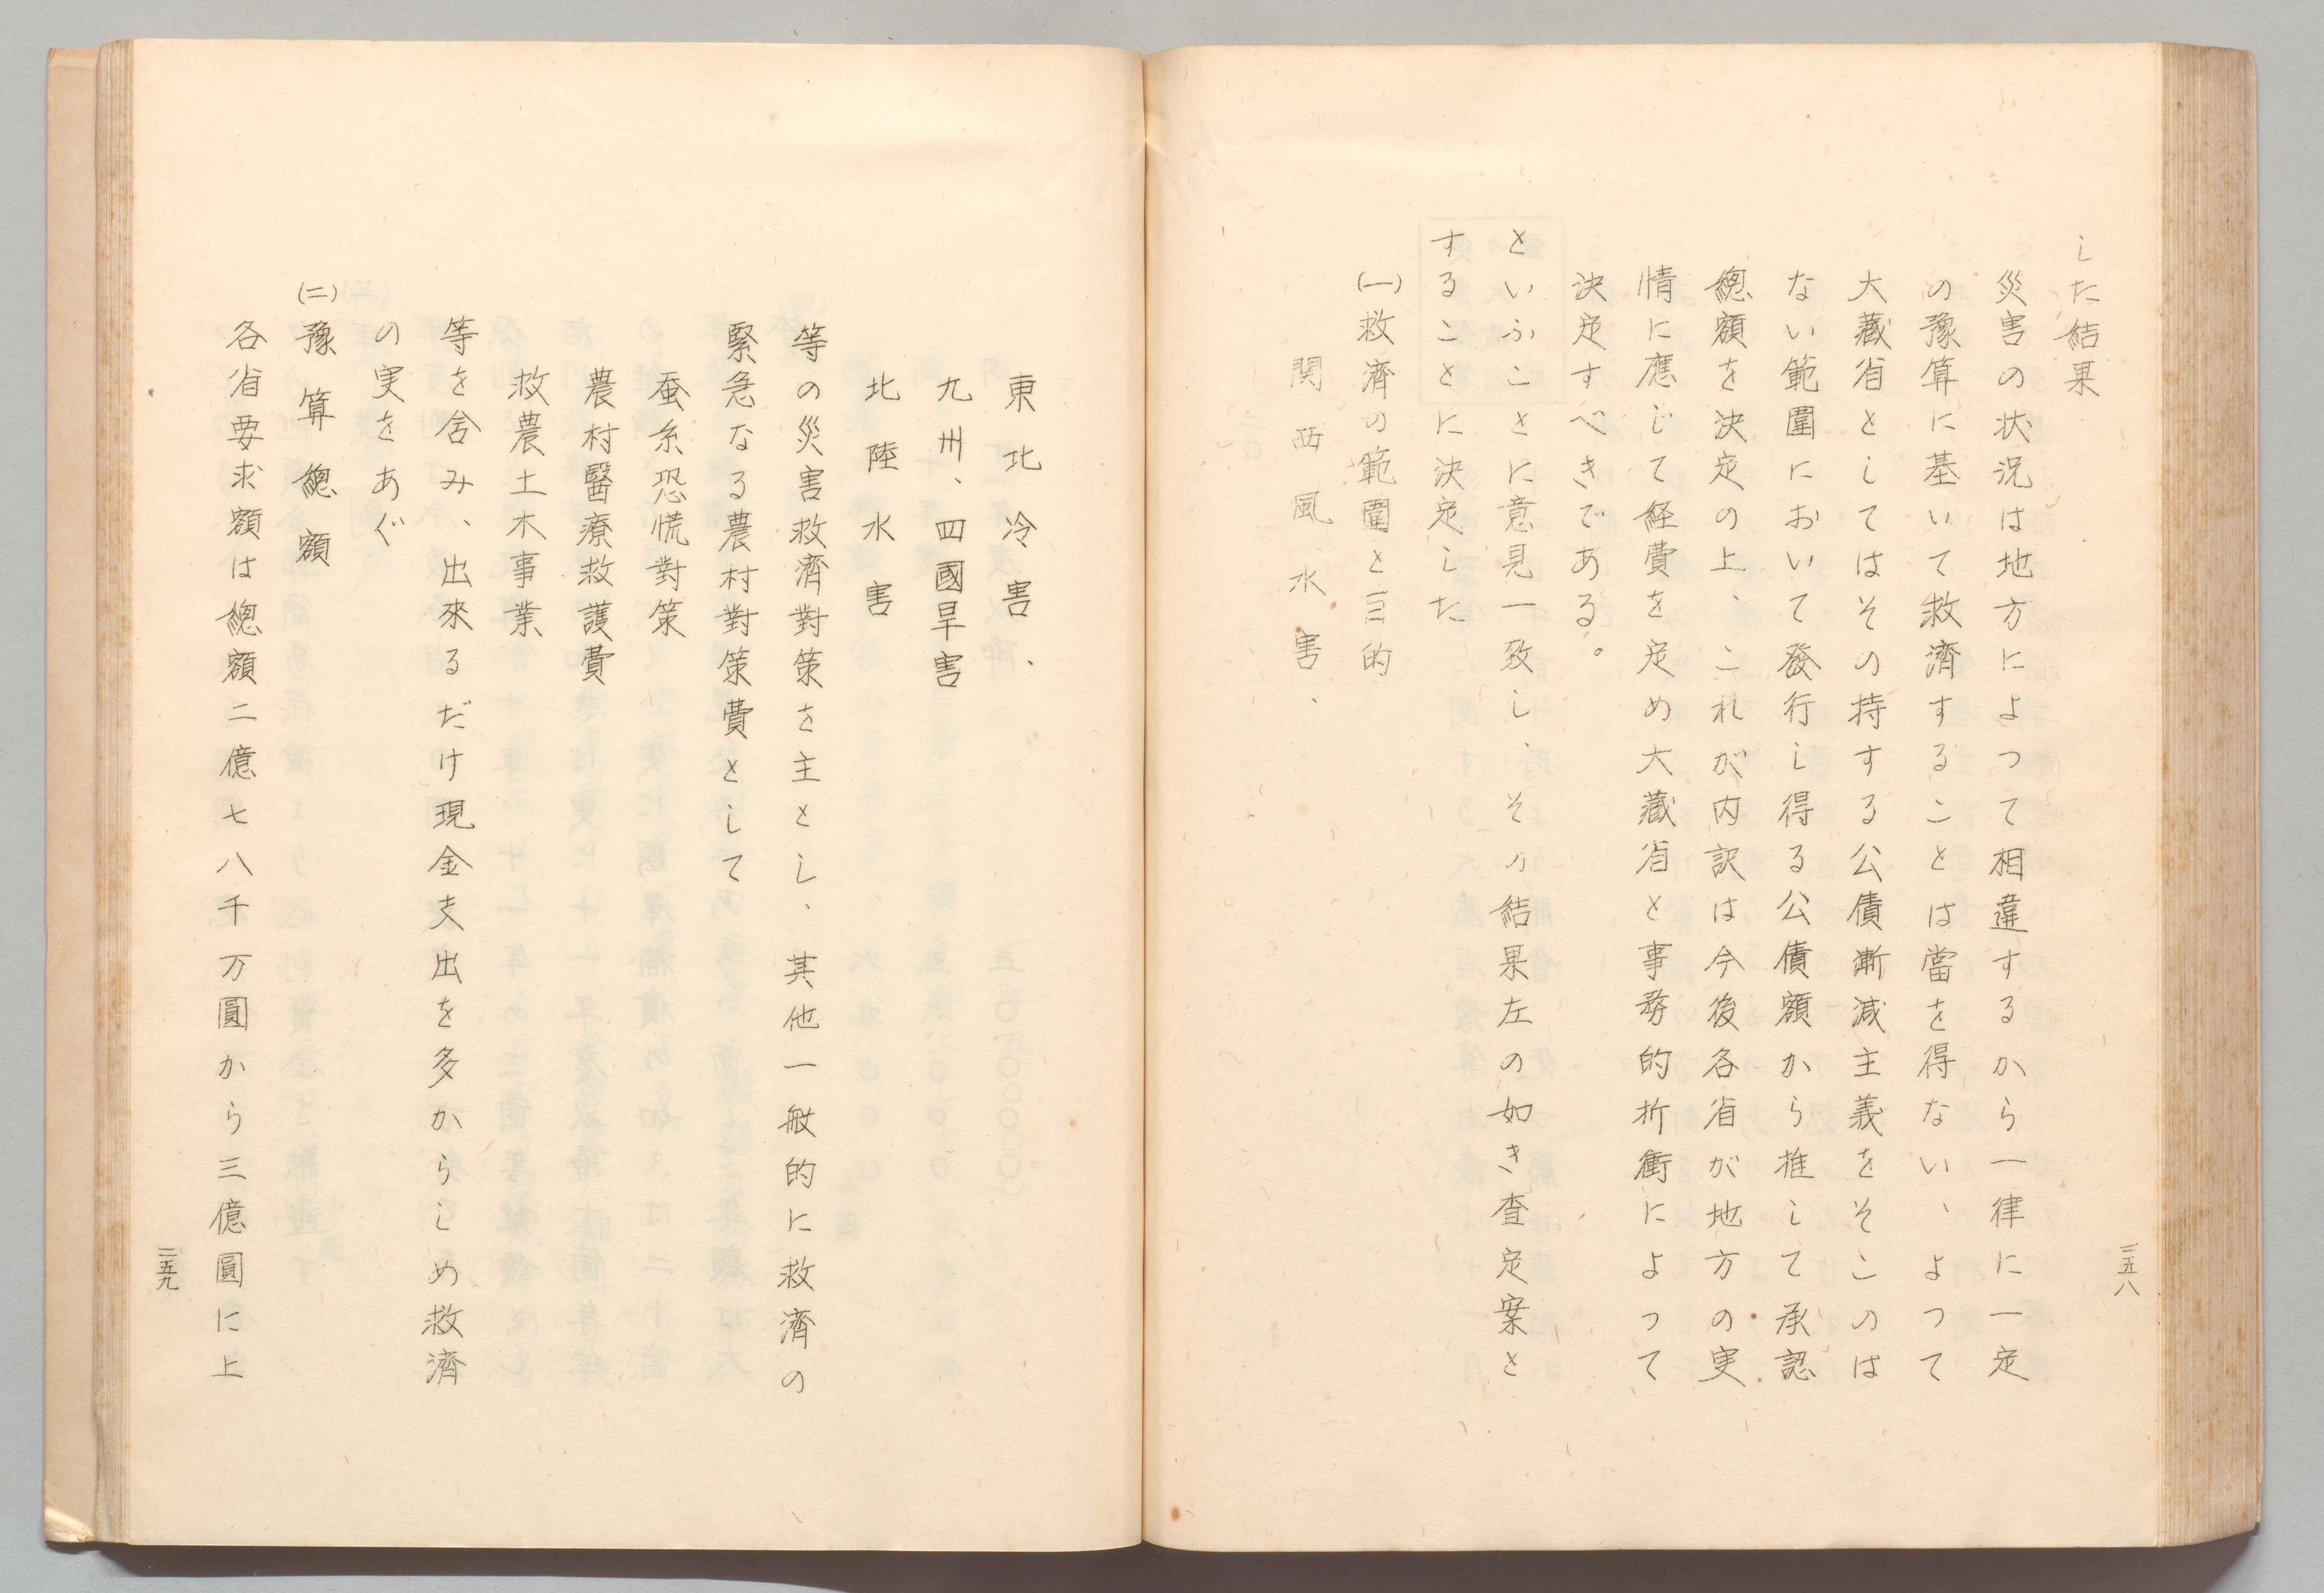 した結果
災害の状況は地方によつて相違するから一律に一定
の豫算に基いて救濟することは當を得ない、よつて
大藏省としてはその持する公債漸減主義をそこのは
ない範圍において發行し得る公債額から推して承認
總額を決定の上、これが内訳は今後各省が地方の実
情に應じて経費を定め大藏省と事務的折衝によって
決定すべきである。
といふことに意見一致し、その結果左の如き査定案と
することに決定した
(一)救濟の範圍と目的
関西風水害、
三五八
東北冷害、
九州、四國旱害
北陸水害
等の災害救濟對策を主とし、其他一般的に救濟の
緊急なる農村對策費として
蚕糸恐慌對策
農村醫療救護費
救農土木事業
等を含み、出來るだけ現金支出を多からしめ救濟
の実をあぐ
(二)豫算總額
各省要求額は總額二億七八千万圓から三億圓に上
三五九